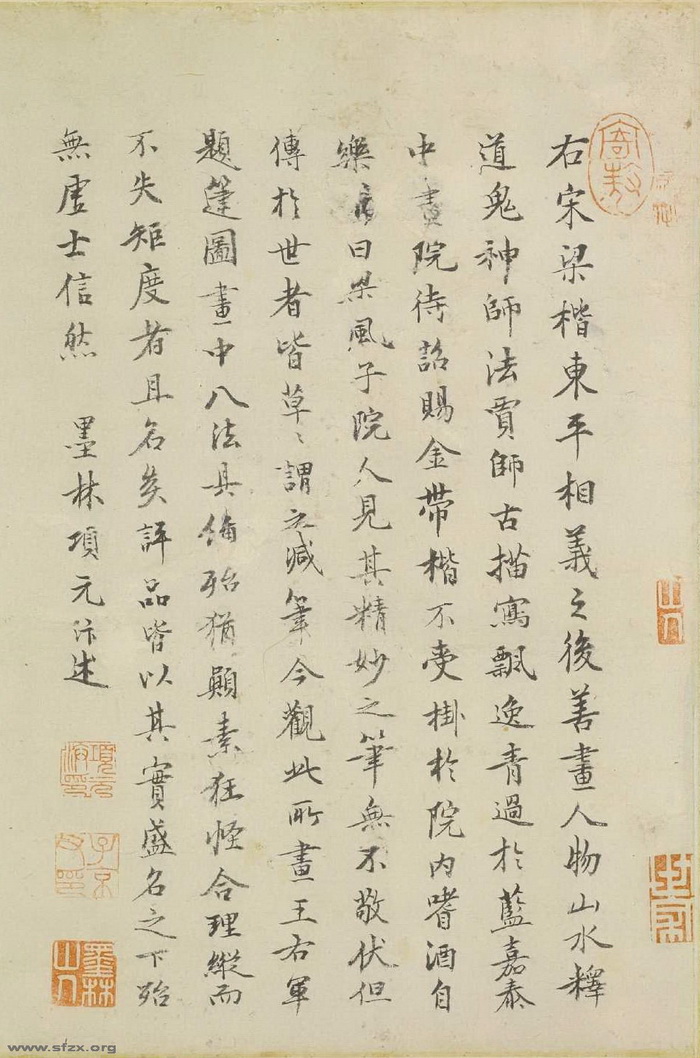 右宋梁楷東平相義之後善畫人物山水釋
道鬼神師法賈師古描寫飄逸青過於藍嘉泰
中畫院待詔賜金帶楷不受掛於院內嗜酒自
樂號曰梁風子院人見其精妙之筆無不敬伏但
傳於世者皆草〻謂之減筆今觀此所畫王右軍
題篷圖畫中八法具備殆猶顛素狂怪合理縱而
不失矩度者且名矣評品皆以其實盛名之下殆
無虛士信然 墨林項元汴述
項元汴印
子京父印
墨林山人
www.sfzx.org